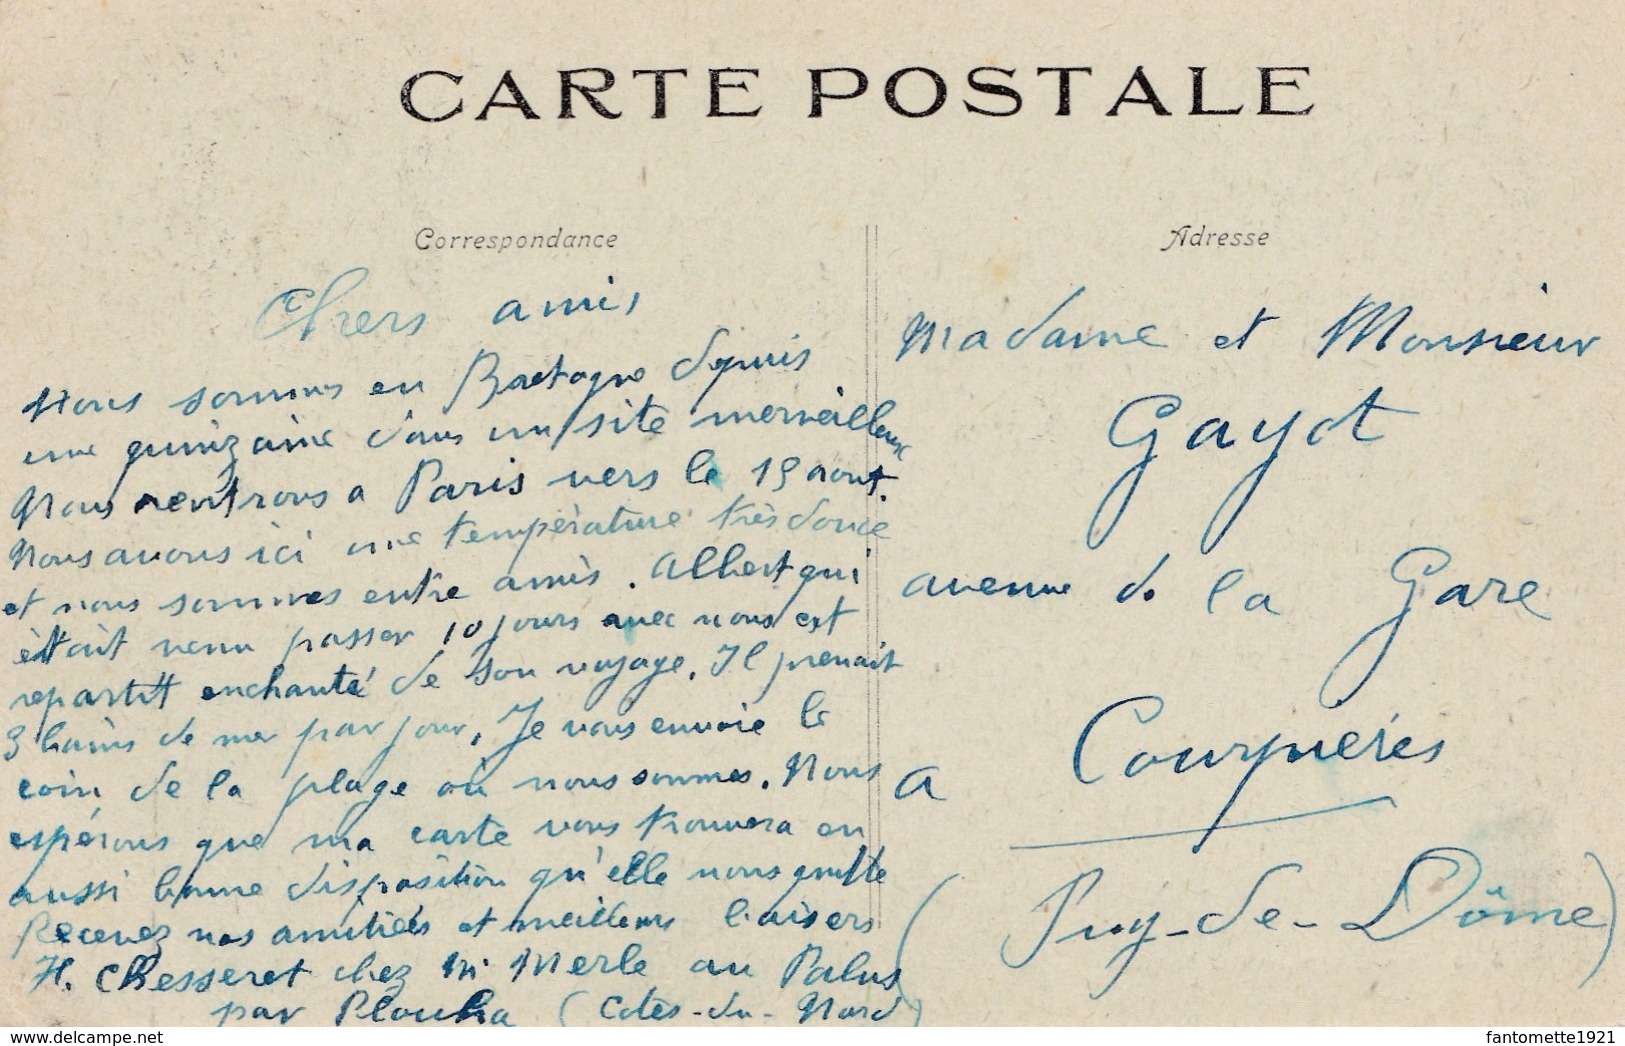 CARTE POSTALE
Correspondance
Chers amis
Nous sommes en Bretagne depuis
une quinzaine dans un site merveilleux
Nous rentrons a Paris vers le 15 aout.
Nous avons ici une température très douce
et nous sommes entre amis. Albert qui
était venu passer 10 jours avec nous est
repartit enchanté de son voyage. Il prenait
3 bains de mer par jour, Je vous envoie le
coin de la plage où nous sommes. Nous
espérons que ma carte vous trouvera en
aussi bonne disposition qu'elle nous quitte
Recevez nos amitiés et meilleurs baisers
H. Chesseret chez Mr Merle au Palus
par Plouha (Cotes-du-Nord)
Adresse
Madame et Monsieur
Gayot
avenue de la Gare
a Courpières
(Puy-de-Dôme)
www.delcampe.net
fantomette1921